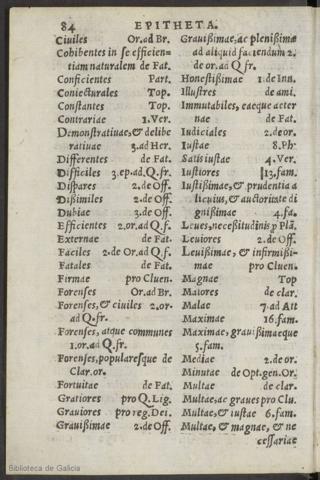 84 EPITHETA.
Ciuiles Or.ad Br.
Cohibentes in se efficien=
tiam naturalem de Fat.
Conficientes Part.
Coniecturales Top.
Constantes Top.
Contrariae 1.Ver.
Demonstratiuae,& delibe
ratiuae 3.ad Her.
Differentes de Fat.
Difficiles 3.ep.ad.Q.fr.
Dispares 2.de Off.
Dissimiles 2.de Off.
Dubiae 3.de Off.
Efficientes 2.or.ad Q.f.
Externae de Fat.
Faciles 2.de Or.ad Q.f.
Fatales de Fat.
Firmae pro Cluen.
Forenses Or.ad Br.
Forenses,& ciuiles 2.or.
ad Q.fr.
Forenses, atque communes
1.or.ad Q.fr.
Forenses,popularesque de
Clar.or.
Fortuitae de Fat.
Gratiores pro Q.Lig.
Grauiores pro reg.Dei.
Grauissimae 2.de Off.
Grauissimae,ac plenissimae
ad aliquid faciendum 2.
de or.ad Q.fr.
Honestissimae 1.de Inn.
Illustres de ami.
Immutabiles, eaeque aeter
nae de Fat.
Iudiciales 2.de or.
Iustae 8.Ph.
Satis iustae 4.Ver.
Iustiores 13.fam.
Iustissimae,& prudentia a
licuius,& auctoritate di
gnissimae 4.fa.
Leues,necessitudinis p Plā.
Leuiores 2.de Off.
Leuissimae,& infirmissi-
mae pro Cluen.
Magnae Top
Maiores de clar.
Malae 7.ad Att
Maximae 16.fam.
Maximae,grauissimaeque
5.fam.
Mediae 2.de or.
Minutae de Opt.gen.Or.
Multae de clar.
Multae,ac graues pro Clu.
Multae,& iustae 6.fam.
Multae, & magnae, & ne
cessariae
Biblioteca de Galicia